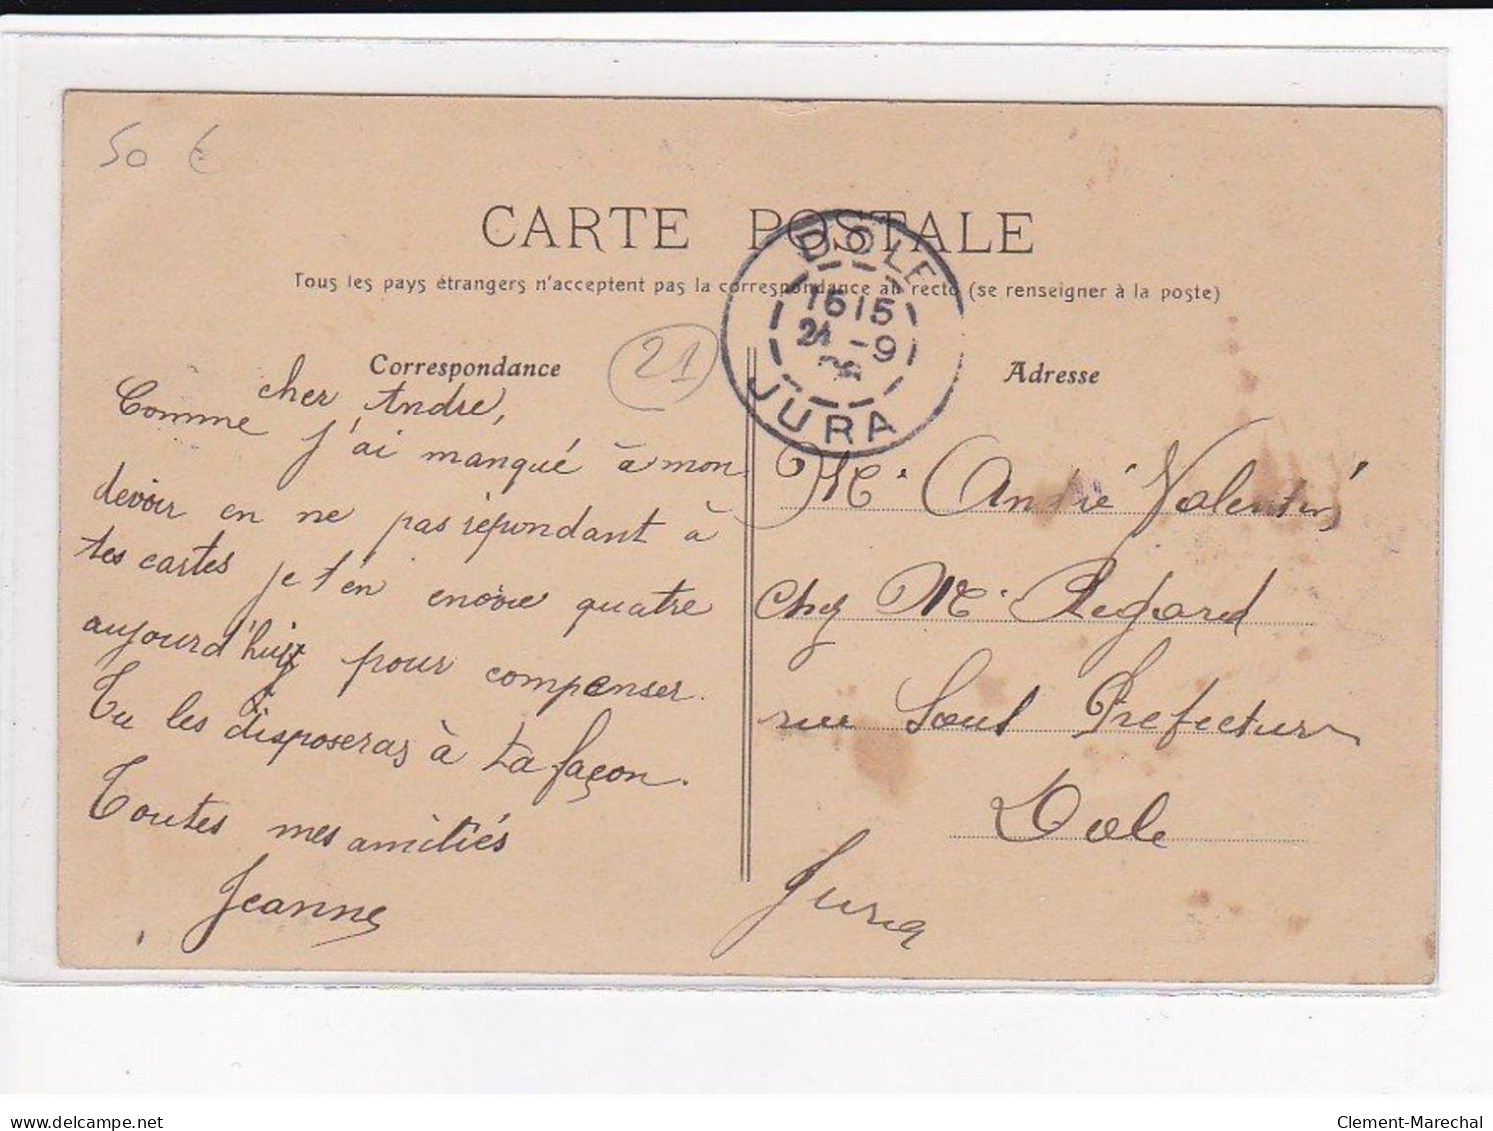 50 €
CARTE POSTALE
Tous les pays étrangers n'acceptent pas la correspondance au recto (se renseigner à la poste)
DOLE
1615
21 -9
JURA
21
Correspondance
cher André,
Comme j'ai manqué à mon
devoir en ne pas répondant à
tes cartes je t'en envoie quatre
aujourd'hui pour compenser.
Tu les disposeras à ta façon.
Toutes mes amitiés
Jeanne
Adresse
Mr André Valentin
chez Mr Regard
rue Sous Préfecture
Dole
Jura
delcampe.net
Clement-Marechal